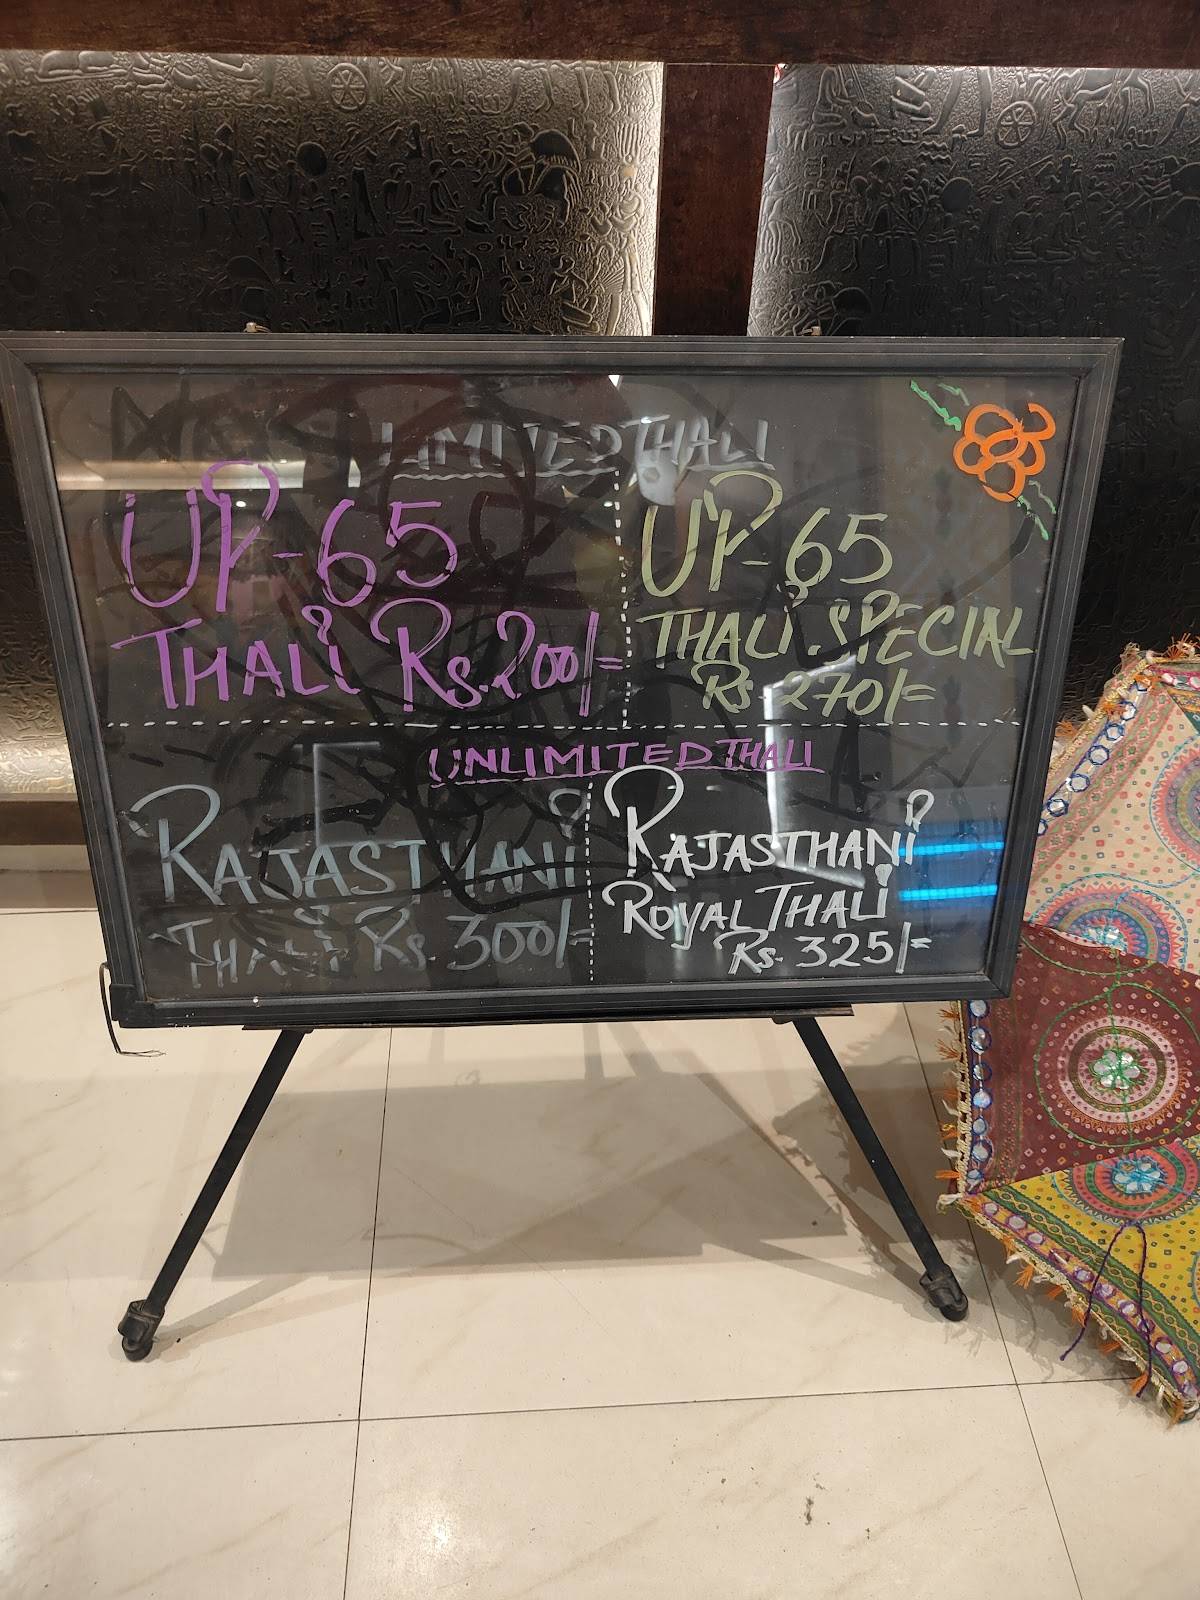 LIMITED THALI
UP-65
THALI Rs. 200/=
UP-65
THALI SPECIAL
Rs. 270/=
UNLIMITED THALI
RAJASTHANI
THALI Rs. 300/=
RAJASTHANI
ROYAL THALI
Rs. 325/=